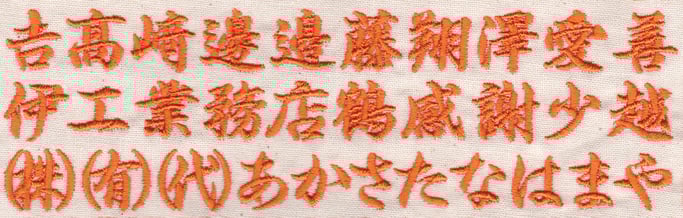 𠮷髙﨑邊邉藤翔澤愛善
伊工業務店鶴感謝少越
(株)(有)(代)あかさたなはまや